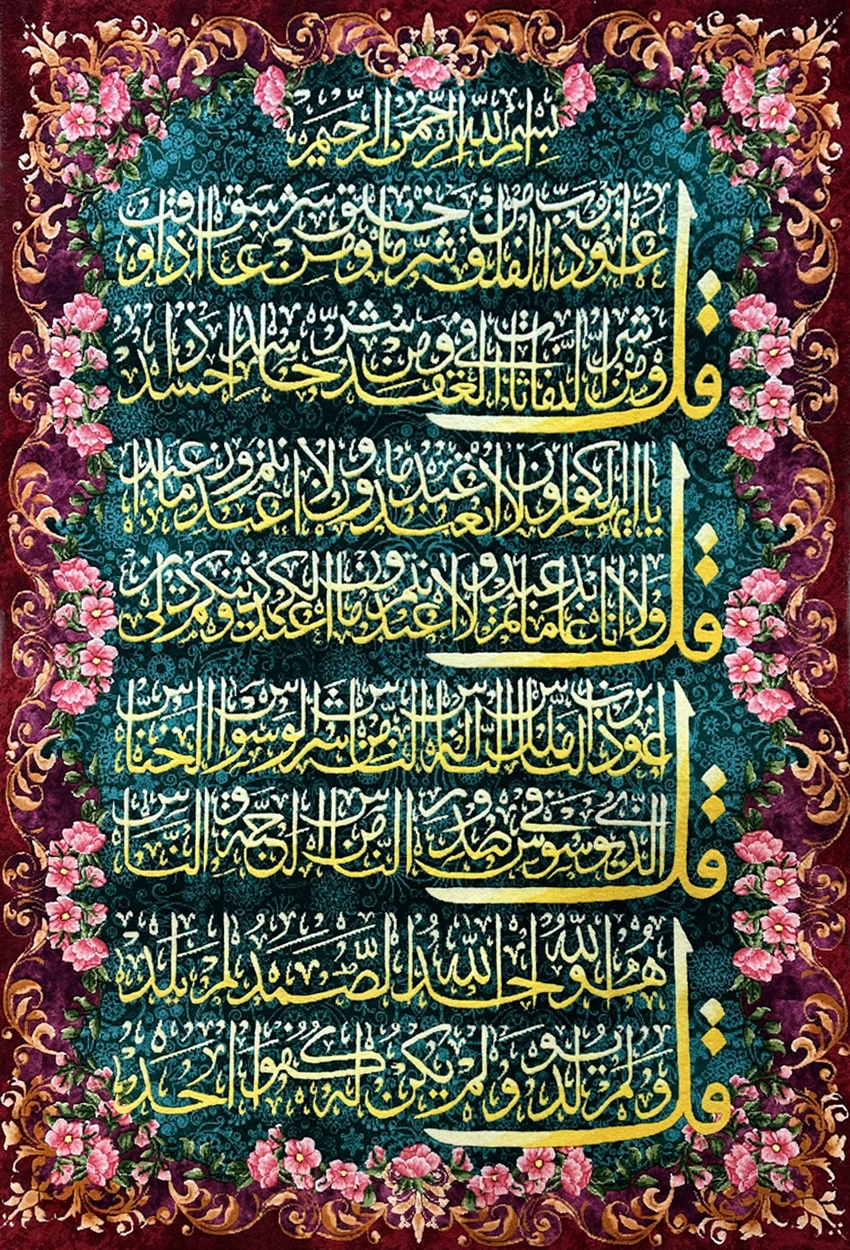 بسم الله الرحمن الرحيم
قل اعوذ برب الفلق من شر ما خلق ومن شر غاسق اذا وقب
ومن شر النفاثات في العقد ومن شر حاسد اذا حسد
قل يا ايها الكافرون لا اعبد ما تعبدون ولا انتم عابدون ما اعبد
ولا انا عابد ما عبدتم ولا انتم عابدون ما اعبد لكم دينكم ولي دين
قل اعوذ برب الناس ملك الناس اله الناس من شر الوسواس الخناس
الذي يوسوس في صدور الناس من الجنة و الناس
قل هو الله احد الله الصمد لم يلد
ولم يولد ولم يكن له كفوا احد